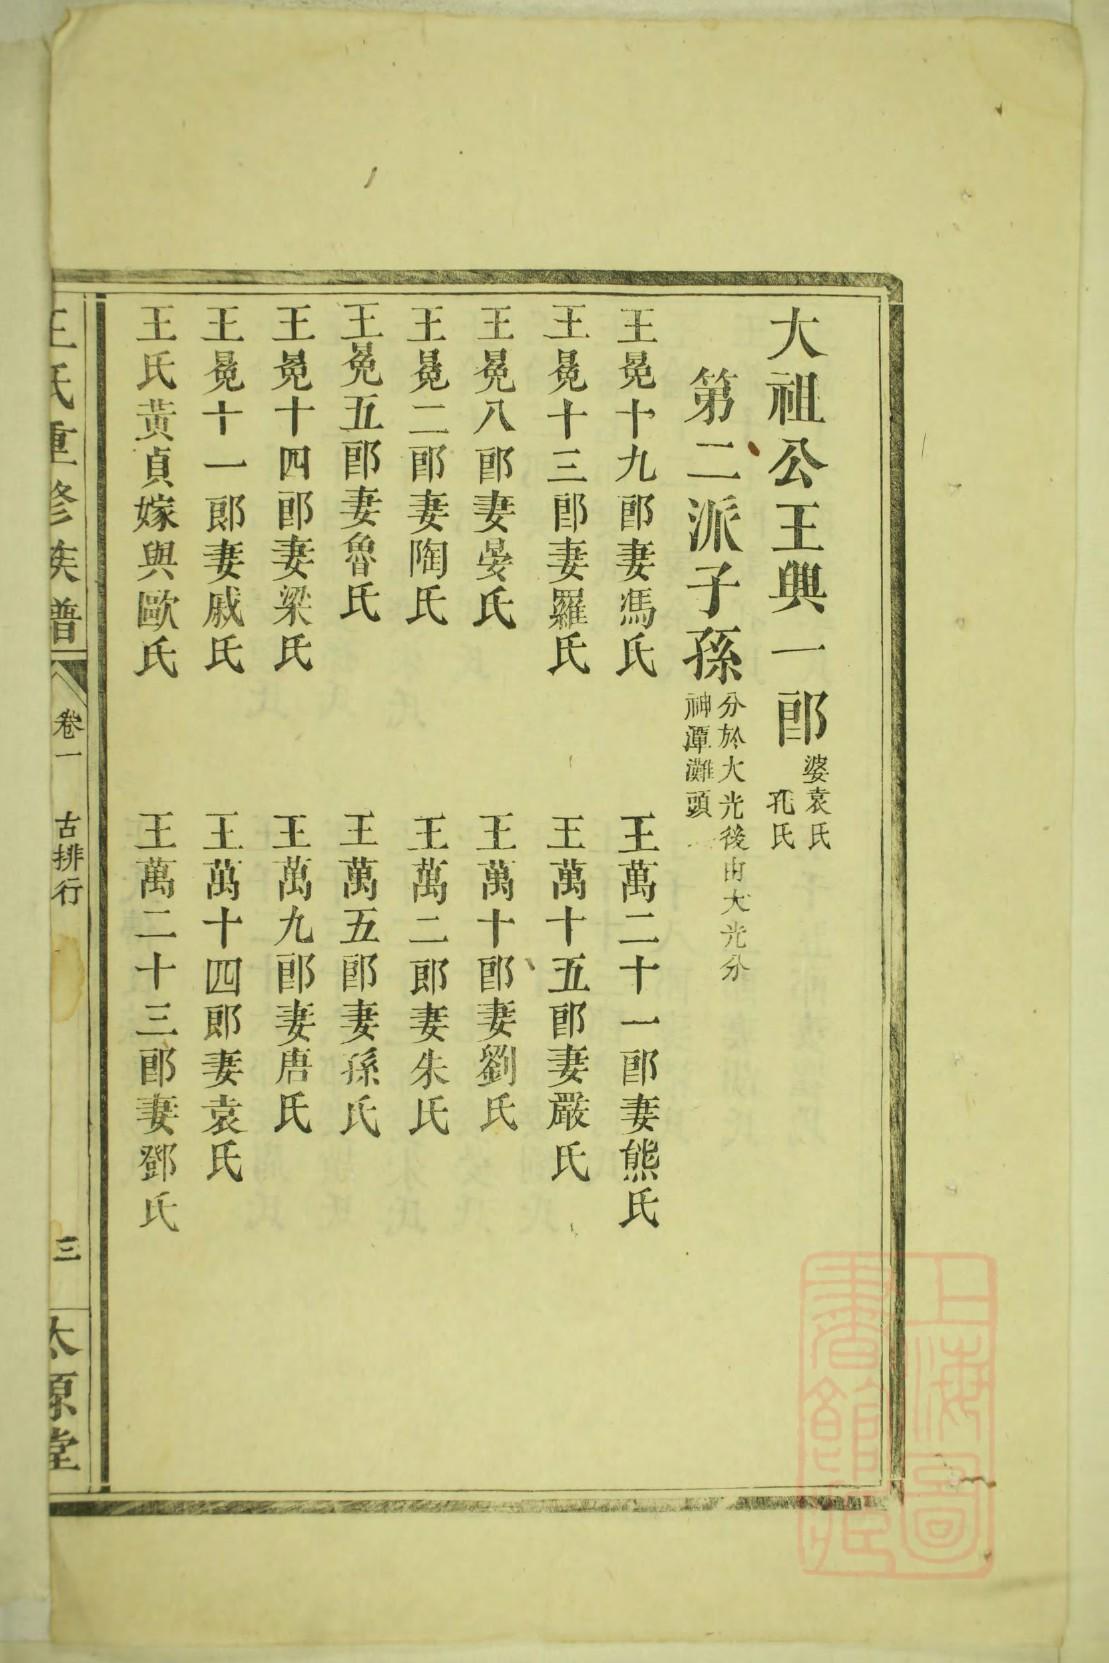 大祖公王興一郎婆袁氏
孔氏
第二派子孫分於大光後由大光分
神潭灘頭
王冕十九郎妻馮氏
王萬二十一郎妻熊氏
王冕十三郎妻羅氏
王萬十五郎妻嚴氏
王冕八郎妻晏氏
王萬十郎妻劉氏
王冕二郎妻陶氏
王萬二郎妻朱氏
王冕五郎妻魯氏
王萬五郎妻孫氏
王冕十四郎妻梁氏
王萬九郎妻唐氏
王冕十一郎妻戚氏
王萬十四郎妻袁氏
王氏黃貞嫁與歐氏
王萬二十三郎妻鄧氏
王氏重修族譜
卷一
古排行
三
太原堂
上海圖書館藏